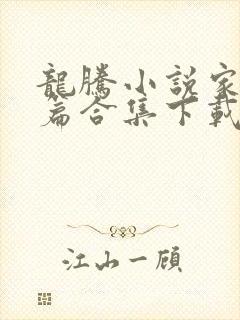 龍騰小說家
篇合集下載
江山一顧